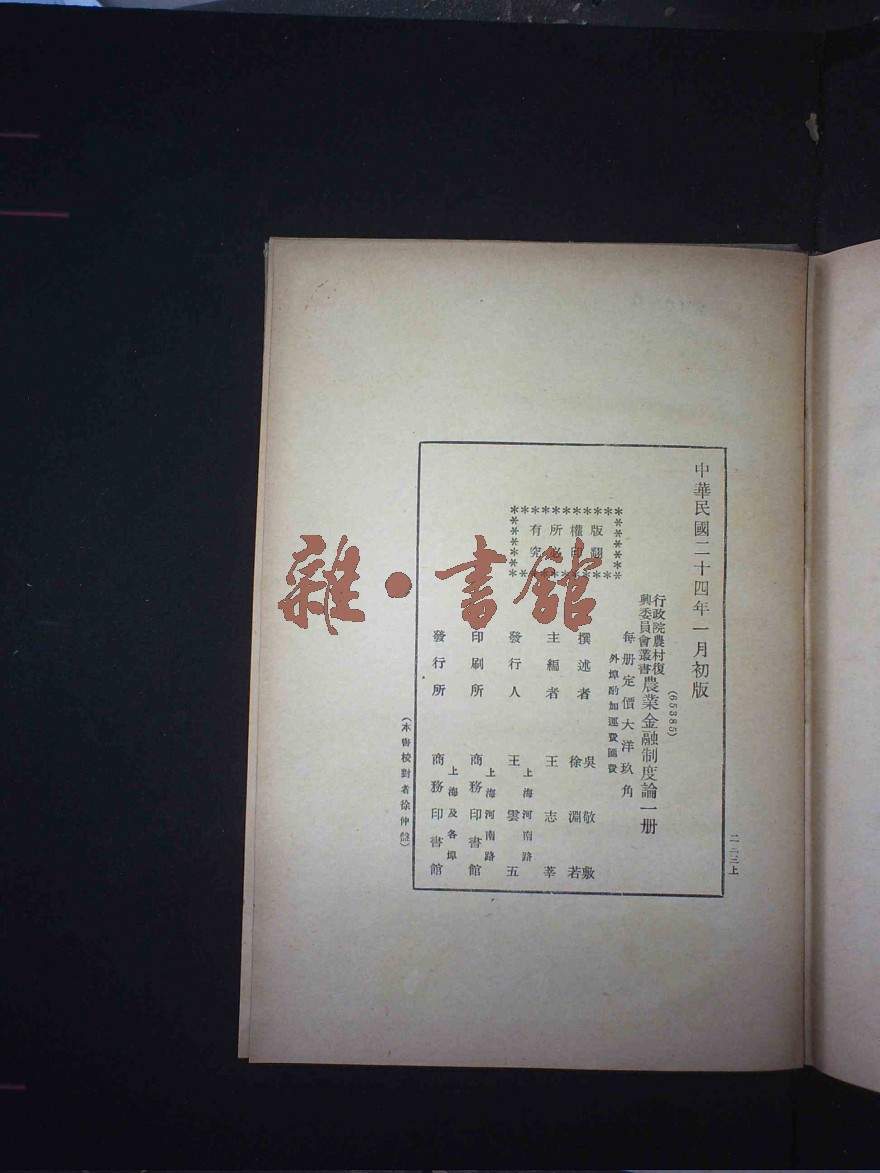 中華民國二十四年一月初版
(65385)
行政院農村復
興委員會叢書
農業金融制度論一册
每册定價大洋玖角
外埠酌加運費匯費
版權所有
翻印必究
撰述者 吳敬敷
徐淵若
主編者 王志莘
上海河南路
發行人 王雲五
上海河南路
印刷所 商務印書館
上海及各埠
發行所 商務印書館
(本書校對者徐仲盤)
雜·書館